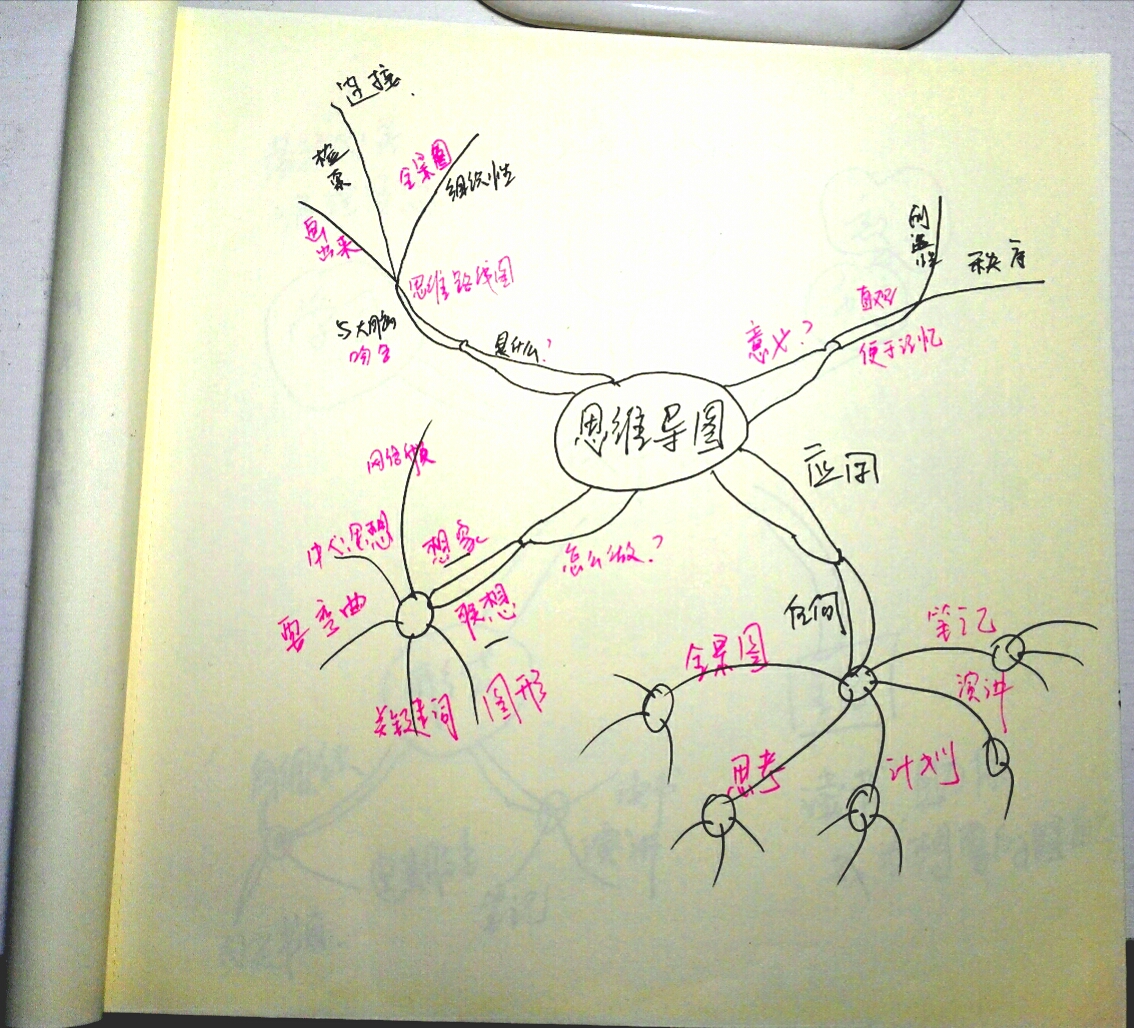 思维导图
是什么?
与大脑
吻合
思维路线图
画出来
检索
连接
全景图
组织性
意义?
直观
便于记忆
创造性
秩序
应用
任何
全景图
思考
计划
演讲
笔记
怎么做?
想象
联想
中心思想
要弯曲
关键词
图形